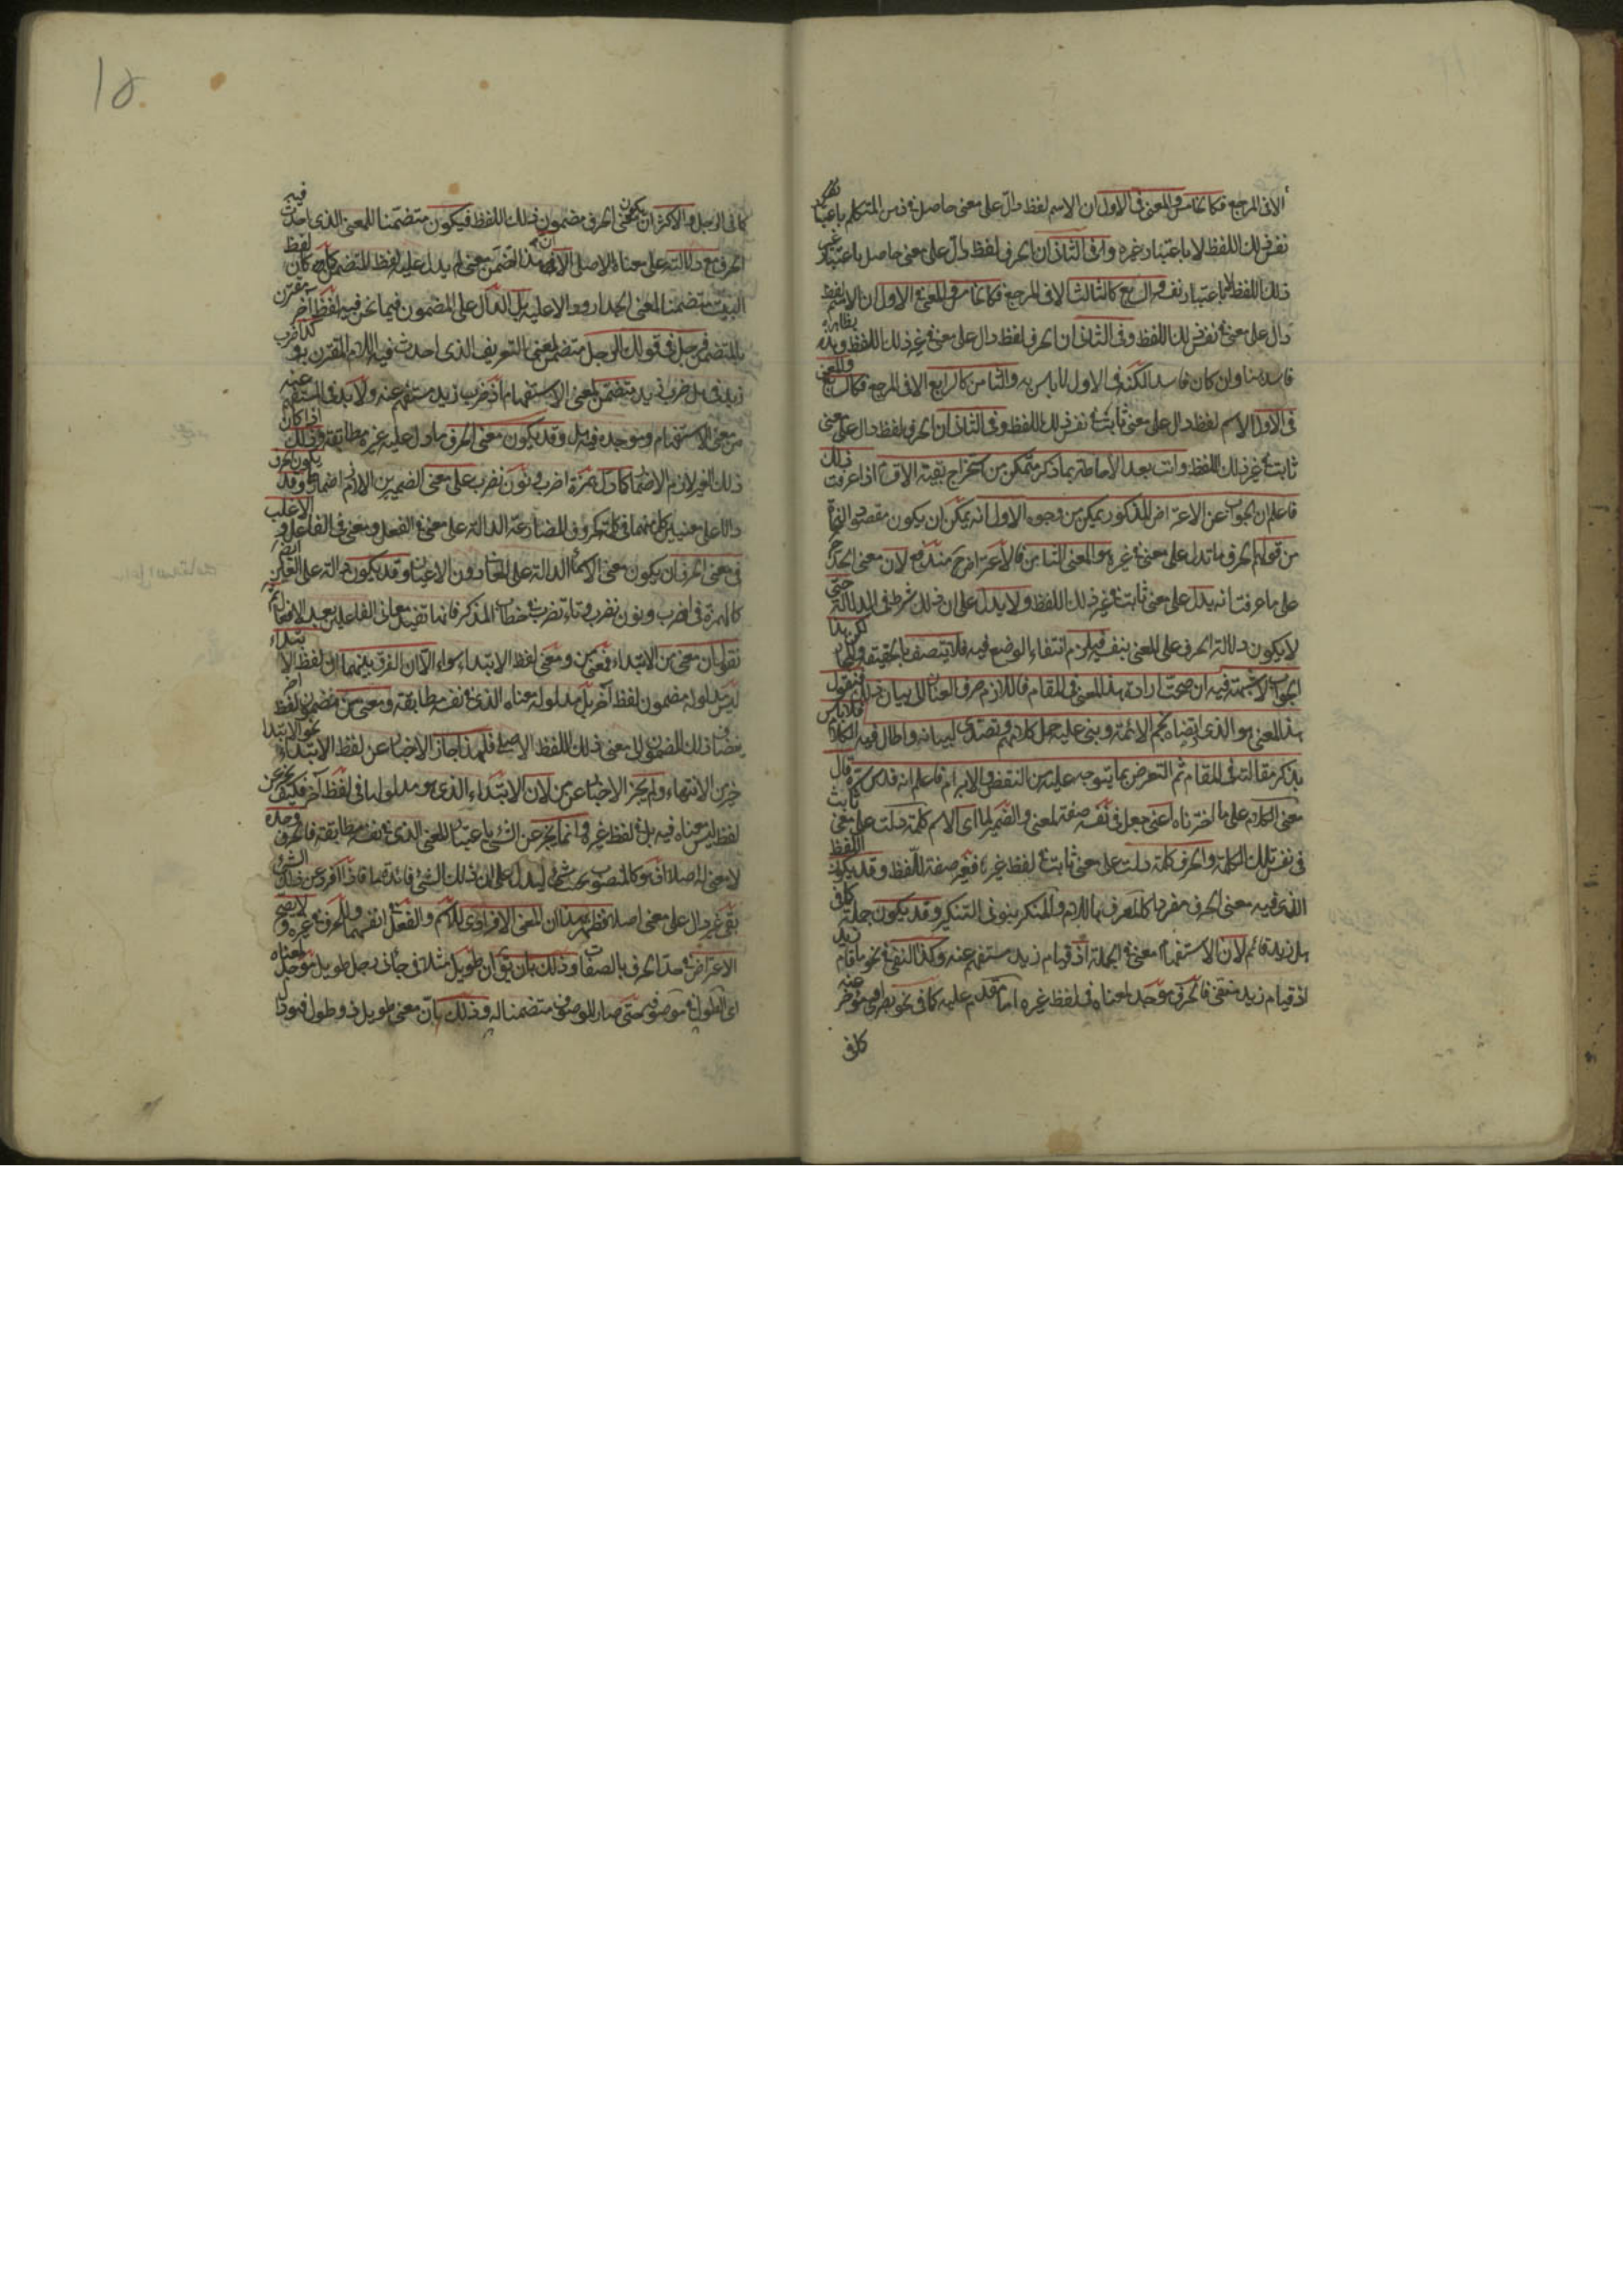 الا فى المرجع فكالخامس والمعنى فى الاول ان الاسم لفظ دال على معنى حاصل فى نفس المتكلم باعتبار
نفس ذلك اللفظ لا باعتبار غيره وفى الثانى ان الحرف لفظ دال على معنى حاصل باعتبار غير
ذلك اللفظ لا باعتبار نفسه والسابع كالثالث الا فى المرجع فكالخامس والمعنى فى الاول ان الاسم لفظ
دال على معنى فى نفس ذلك اللفظ وفى الثانى ان الحرف لفظ دال على معنى فى غير ذلك اللفظ وهذا بظاهره
فاسد هنا وان كان فاسدا لكنه فى الاول لا باس به والثامن كالرابع الا فى المرجع فكالسابع والمعنى
فى الاول الاسم لفظ دال على معنى ثابت فى نفس ذلك اللفظ وفى الثانى ان الحرف لفظ دال على معنى
ثابت فى غير ذلك اللفظ وانت بعد الاحاطة بما ذكر متمكن من استخراج بقية الاقسام اذا عرفت ذلك
فاعلم ان الجواب عن الاعتراض المذكور يمكن من وجوه الاول انه يمكن ان يكون مقصود النحاة
من قولهم الحرف ما تدل على معنى فى غيره هو المعنى الثامن فالاعتراض ح مندفع لان معنى الحد
على ما عرفت انه يدل على معنى ثابت فى غير ذلك اللفظ ولا يدل على ان ذلك شرط فى الدلالة حتى
لا يكون دلالة الحرف على المعنى بنفسه فيلزم انتفاء الوضع فيه فلا يتصف بالحقيقة والمجاز لكن هذا
الجواب لا يتم فيه ان صحت ارادة هذا المعنى فى المقام فاللازم صرف العنان الى بيان ذلك فنقول
هذا المعنى هو الذى ارتضاه نجم الائمة وبنى عليه جل كلامهم وتصدى لبيانه واطال فيه الكلام فلا باس
بذكر مقالته فى المقام ثم التعرض بما يتوجه عليه من النقض والابرام فاعلم انه قدس سره قال
معنى الكلام على ما اخترناه اعنى جعل فى نفسه صفة لمعنى والضمير لما اى الاسم كلمة دلت على معنى ثابت
فى نفس تلك الكلمة والحرف كلمة دلت على معنى ثابت فى لفظ غيرها فغير صفة اللفظ وقد يكون اللفظ
الذى فيه معنى الحرف مفردا كالمعرف باللام والمنكر بتنوين التنكير وقد يكون جملة كما فى
هل زيد قائم لان الاستفهام معنى فى الجملة اذ قيام زيد مستفهم عنه وكذا النفى فى نحو ما قام زيد
اذ قيام زيد منفى فالحرف موجد لمعناه فى لفظ غيره اما مقدم عليه كما فى نحو بصرى او مؤخر عنه
كما فى
١٥
كما فى الرجل والاكثر ان يكون معنى الحرف مضمون ذلك اللفظ فيكون متضمنا للمعنى الذى احدث فيه
الحرف مع دلالته على معناه الاصلى الا ان هذا تضمن معنى لم يدل عليه لفظ المتضمن كما كان لفظ
البيت متضمنا لمعنى الجدار ودالا عليه بل الدال على المضمون فيما نحن فيه لفظ آخر مقترن
بالمتضمن فرجل فى قولك الرجل متضمن لمعنى التعريف الذى احدث فيه اللام المقترن به وكذا ضرب
زيد فى هل ضرب زيد متضمن لمعنى الاستفهام اذ ضرب زيد مستفهم عنه ولا بد فى المستفهم عنه
من معنى الاستفهام وموجده فيه هل وقد يكون معنى الحرف ما دل عليه غيره مطابقة وذلك اذا كان
ذلك الغير لازم الاضمار كما دل همزة اضرب ونون نضرب على معنى الضميرين اللازم اضمارهما وقد يكون الحرف
دالا على معنيين كل منهما فى كلمة كحروف المضارعة الدالة على معنى فى الفعل ومعنى فى الفاعل والاغلب
فى معنى الحرف ان يكون معنى الاسماء الدالة على المعانى دون الاعيان وقد يكون دالة على العين ايضا
كالهمزة فى اضرب ونون نضرب وتاء تضرب فى خطاب المذكر فانها تفيد معانى الفاعلين بعد الافعال ثم
نقول ان معنى من الابتداء فمعنى من ومعنى لفظ الابتداء سواء الا ان الفرق بينهما ان لفظ الابتداء
ليس مدلوله مضمون لفظ آخر بل مدلوله معناه الذى فى نفسه مطابقة ومعنى من مضمون لفظ آخر
يضاف ذلك المضمون الى معنى ذلك اللفظ الاصلى فلهذا جاز الاخبار عن لفظ الابتداء نحو الابتداء
خير من الانتهاء ولم يجز الاخبار عن من لان الابتداء الذى هو مدلولها فى لفظ آخر فكيف يخبر عن
لفظ ليس معناه فيه بل فى لفظ غيره وانما يخبر عن الشئ باعتبار المعنى الذى فى نفسه مطابقة فالحرف وحده
لا معنى له اصلا اذ هو كالعلم المنصوب بجنب شئ ليدل على ان فى ذلك الشئ فائدة ما فاذا افرد عن ذلك الشئ
بقى غير دال على معنى اصلا فظهر بهذا ان المعنى الافرادى للاسم والفعل فى انفسهما وللحرف فى غيره ولا يصح
الاعتراض فى حد الحرف بالصفات وذلك بان يق ان طويل مثلا فى جائنى رجل طويل موجد لمعناه
اى الطول فى موصوفه حتى صار الموصوف متضمنا له وذلك بان معنى طويل ذو طول فهو دال